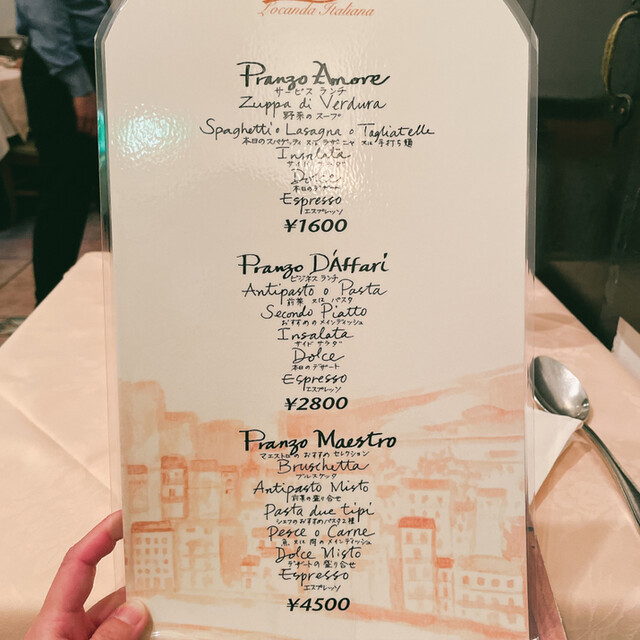 Locanda Italiana
Pranzo Amore
サービス ランチ
Zuppa di Verdura
野菜のスープ
Spaghetti o Lasagna o Tagliatelle
本日のスパゲッティ 又は ラザーニャ 又は 手打ち麺
Insalata
サイド
Dolce
本日のデザート
Espresso
エスプレッソ
¥1600
Pranzo D'Affari
ビジネス ランチ
Antipasto o Pasta
前菜 又は パスタ
Secondo Piatto
おすすめのメインディッシュ
Insalata
サイド サラダ
Dolce
本日のデザート
Espresso
エスプレッソ
¥2800
Pranzo Maestro
マエストロの おすすめ セレクション
Bruschetta
ブルスケッタ
Antipasto Misto
前菜の盛り合せ
Pasta due tipi
シェフのおすすめパスタ2種
Pesce o Carne
魚 又は 肉の メインディッシュ
Dolce Misto
デザートの 盛り合せ
Espresso
エスプレッソ
¥4500